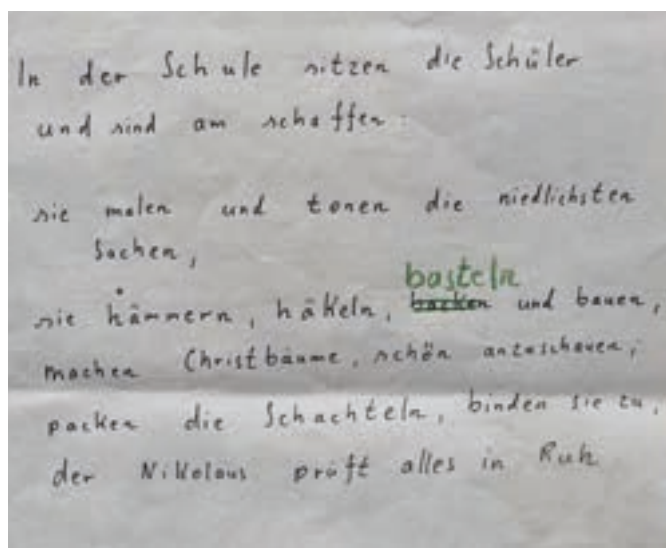 In der Schule sitzen die Schüler
und sind am schaffen:
sie malen und tonen die niedlichsten
Sachen,
basteln
sie hämmern, häkeln, backen und bauen,
machen Christbäume, schön anzuschauen,
packen die Schachteln, binden sie zu,
der Nikolaus prüft alles in Ruh